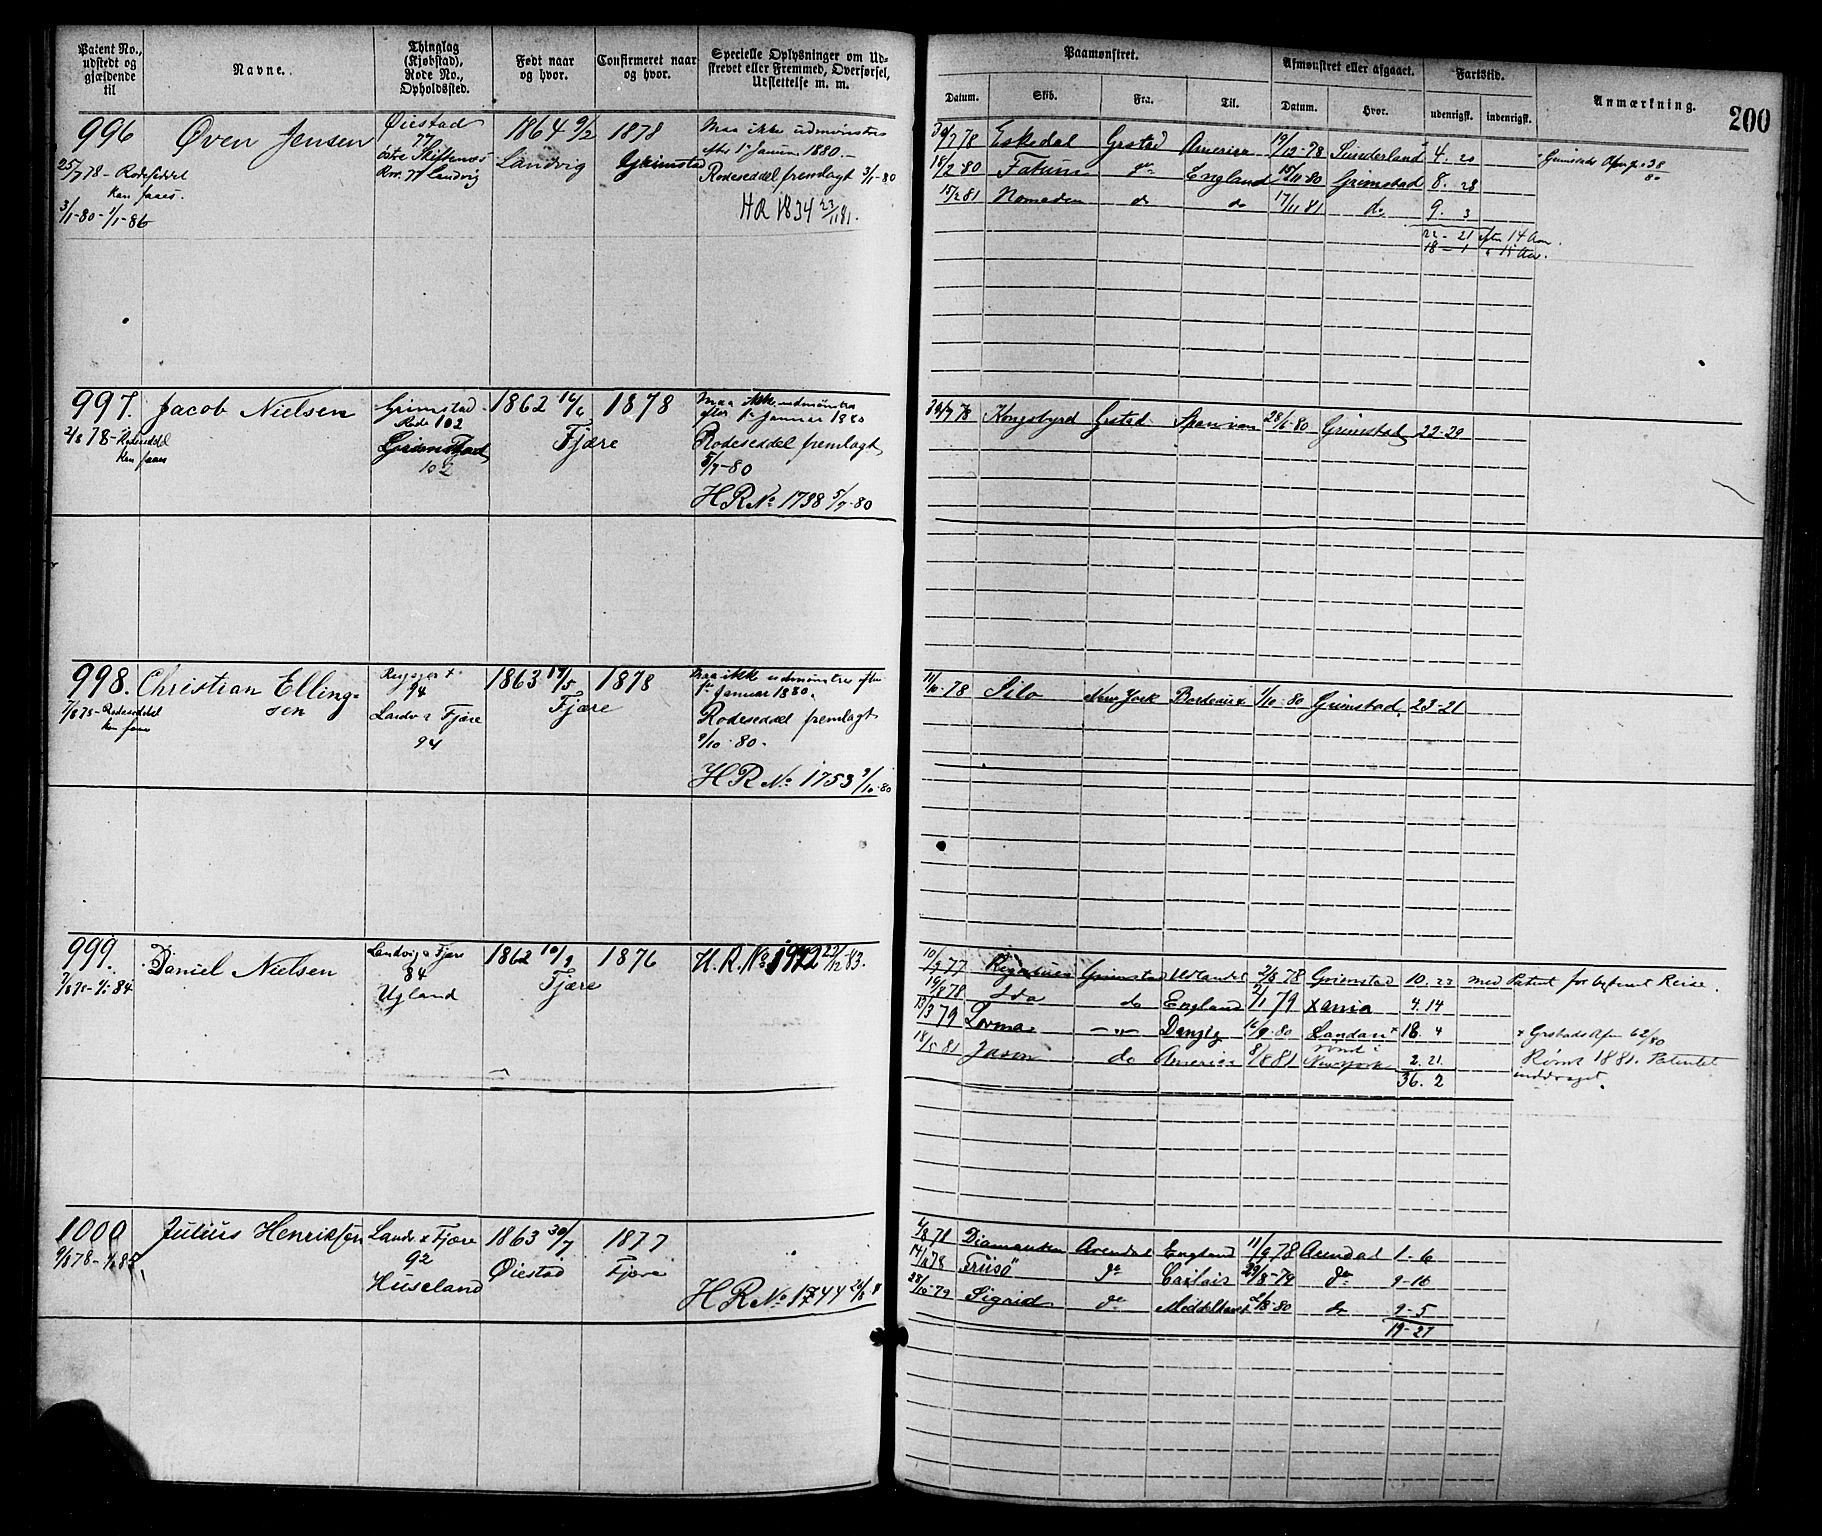 Patent No., udstedt og gjældende til
Navne.
Thinglag (Kjøbstad), Rode No., Opholdssted.
Født naar og hvor.
Confirmeret naar og hvor.
Specielle Oplysninger om Udskrevet eller Fremmed, Overførsel, Udslettelse m. m.
Paamønstret.
Datum.
Skib.
Fra.
Til.
Afmønstret eller afgaaet.
Datum.
Hvor.
Fartstid.
udenrigsk.
indenrigsk.
Anmærkning.
200
996
25/7 78 - Rodeseddel
kan faaes.
3/1-80 - 1/1-86
Øven Jensen
Øiestad
77
østre
No. 77 Landvig
1864 9/2
Landvig
1878
Grimstad
Maa ikke udmønstres
efter 1ste Januar 1880.-
Rodeseddel fremlagt 3/1-80
HR 1834 23/11 81.
30/7 78 Eskedal Grstad Amerika 19/12-78 Sunderland 4. 20
Grimstads 38/80
18/2 80 do England Grimstad 8. 28
15/2 81 Nomaden do do 17/11 81 do 9. 3
22 - 21 efter 14 Aar.
18 - 1 " 15 Aar.
997.
2/8 78 - Rodeseddel
kan faaes
Jacob Nielsen
Grimstad
Rode 102
Grimstad
102
1862 14/6
Fjære
1878
Maa ikke udmønstres
efter 1ste Januar 1880
Rodeseddel fremlagt
5/7-80
HR No 1738 5/7-80
Grstad Spanien 28/6-80 Grimstad 22-29
998.
Rodeseddel
kan faaes
Christian Elling-
sen
94
Landv & Fjære
94
1863 17/5
Fjære
1878
Maa ikke udmønstres efter
1ste Januar 1880.
Rodeseddel fremlagt
9/10-80.
HR No 1753 9/10-80
11/10-78 Silo New York Bordeaux 1/10-80 Grimstad. 23-21
999.
Daniel Nielsen
Landvig & Fjære
84
Ugland
1862 10/9
Fjære
1876
H.R. No 1972 22/12 83.
10/9 77 Grimstad Udlandet 2/8 78 Grimstad 10. 23 med Patent for Reise.
19/8 78 Ida do England 2/1 79 Xania 4. 14
13/3 79 Lorma - " - Danzig 16/9-80 18. 4
x Grstads 62/80
18/5 81 Jason do Amerika 8/8 81
rømt i
New York 2. 21
Rømt 1881. Patentet
inddraget.
36. 2
1000
Julius Henriksen
Landv & Fjære
92
Huseland
1863 30/7
Øiestad
1877
Fjære
HR No 1744
6/8 78 Diamanten Arendal England 11/9 78 Arendal 1-6
14/11 78 do Calais 29/8-79 do 9-16
28/10-79 Sigrid do Middelhavet 2/8-80 do 9-5
19-27